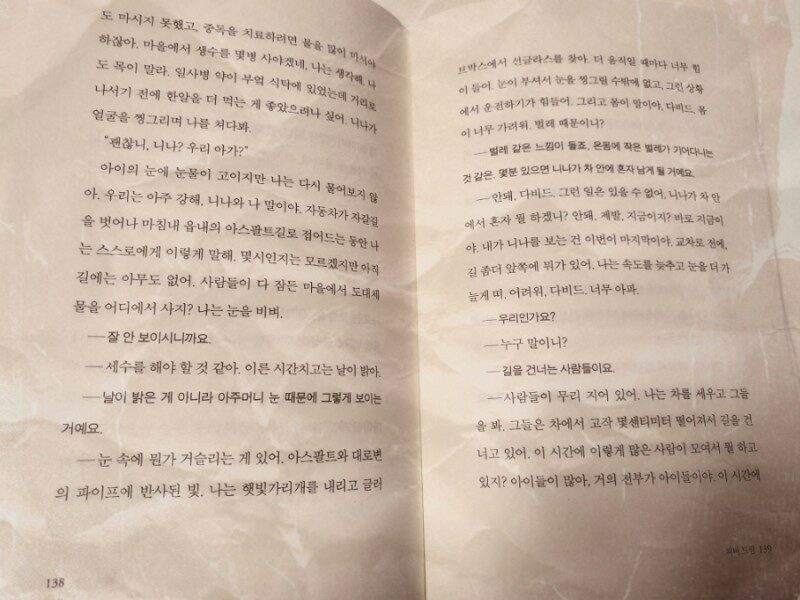 도 마시지 못했고, 중독을 치료하려면 물을 많이 마셔야
하잖아. 마을에서 생수를 몇병 사야겠네, 나는 생각해. 나
도 목이 말라. 일사병 약이 부엌 식탁에 있었는데 거리로
나서기 전에 한알을 더 먹는 게 좋았으려나 싶어. 니나가
얼굴을 찡그리며 나를 쳐다봐.
“괜찮니, 니나? 우리 아가?”
아이의 눈에 눈물이 고이지만 나는 다시 물어보지 않
아. 우리는 아주 강해, 니나와 나 말이야. 자동차가 자갈길
을 벗어나 마침내 읍내의 아스팔트길로 접어드는 동안 나
는 스스로에게 이렇게 말해. 몇시인지는 모르겠지만 아직
길에는 아무도 없어. 사람들이 다 잠든 마을에서 도대체
물을 어디에서 사지? 나는 눈을 비벼.
—잘 안 보이시니까요.
—세수를 해야 할 것 같아. 이른 시간치고는 날이 밝아.
—날이 밝은 게 아니라 아주머니 눈 때문에 그렇게 보이는
거예요.
—눈 속에 뭔가 거슬리는 게 있어. 아스팔트와 대로변
의 파이프에 반사된 빛. 나는 햇빛가리개를 내리고 글러
138
브박스에서 선글라스를 찾아. 더 움직일 때마다 너무 힘
이 들어. 눈이 부셔서 눈을 찡그릴 수밖에 없고, 그런 상황
에서 운전하기가 힘들어. 그리고 몸이 말이야, 다비드. 몸
이 너무 가려워. 벌레 때문이니?
—벌레 같은 느낌이 들죠, 온몸에 작은 벌레가 기어다니는
것 같은. 몇분 있으면 니나가 차 안에 혼자 남게 될 거예요.
—안돼, 다비드. 그런 일은 있을 수 없어, 니나가 차 안
에서 혼자 뭘 하겠니? 안돼, 제발, 지금이지? 바로 지금이
야. 내가 니나를 보는 건 이번이 마지막이야. 교차로 전에,
길 좀더 앞쪽에 뭐가 있어. 나는 속도를 늦추고 눈을 더 가
늘게 떠. 어려워, 다비드. 너무 아파.
—우리인가요?
—누구 말이니?
—길을 건너는 사람들이요.
—사람들이 무리 지어 있어. 나는 차를 세우고 그들
을 봐. 그들은 차에서 고작 몇센티미터 떨어져서 길을 건
너고 있어. 이 시간에 이렇게 많은 사람이 모여서 뭘 하고
있지? 아이들이 많아, 거의 전부가 아이들이야. 이 시간에
피버 드림 139